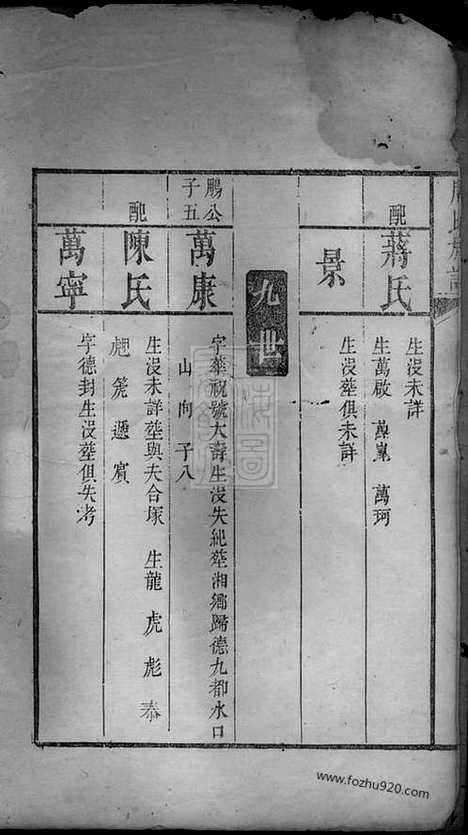 氏族譜
配
蔣氏
生沒未詳
生萬啟 萬嵬 萬珂
景
生沒塟俱未詳
九世
鵬公子五
萬康
字華祝號大壽生沒失紀塟湘鄉歸德九都水口
山向子八
配
陳氏
生沒未詳塟與夫合塚 生龍 虎 彪 奉
賔
萬寧
字德封生沒塟俱失考
www.fozhu920.com